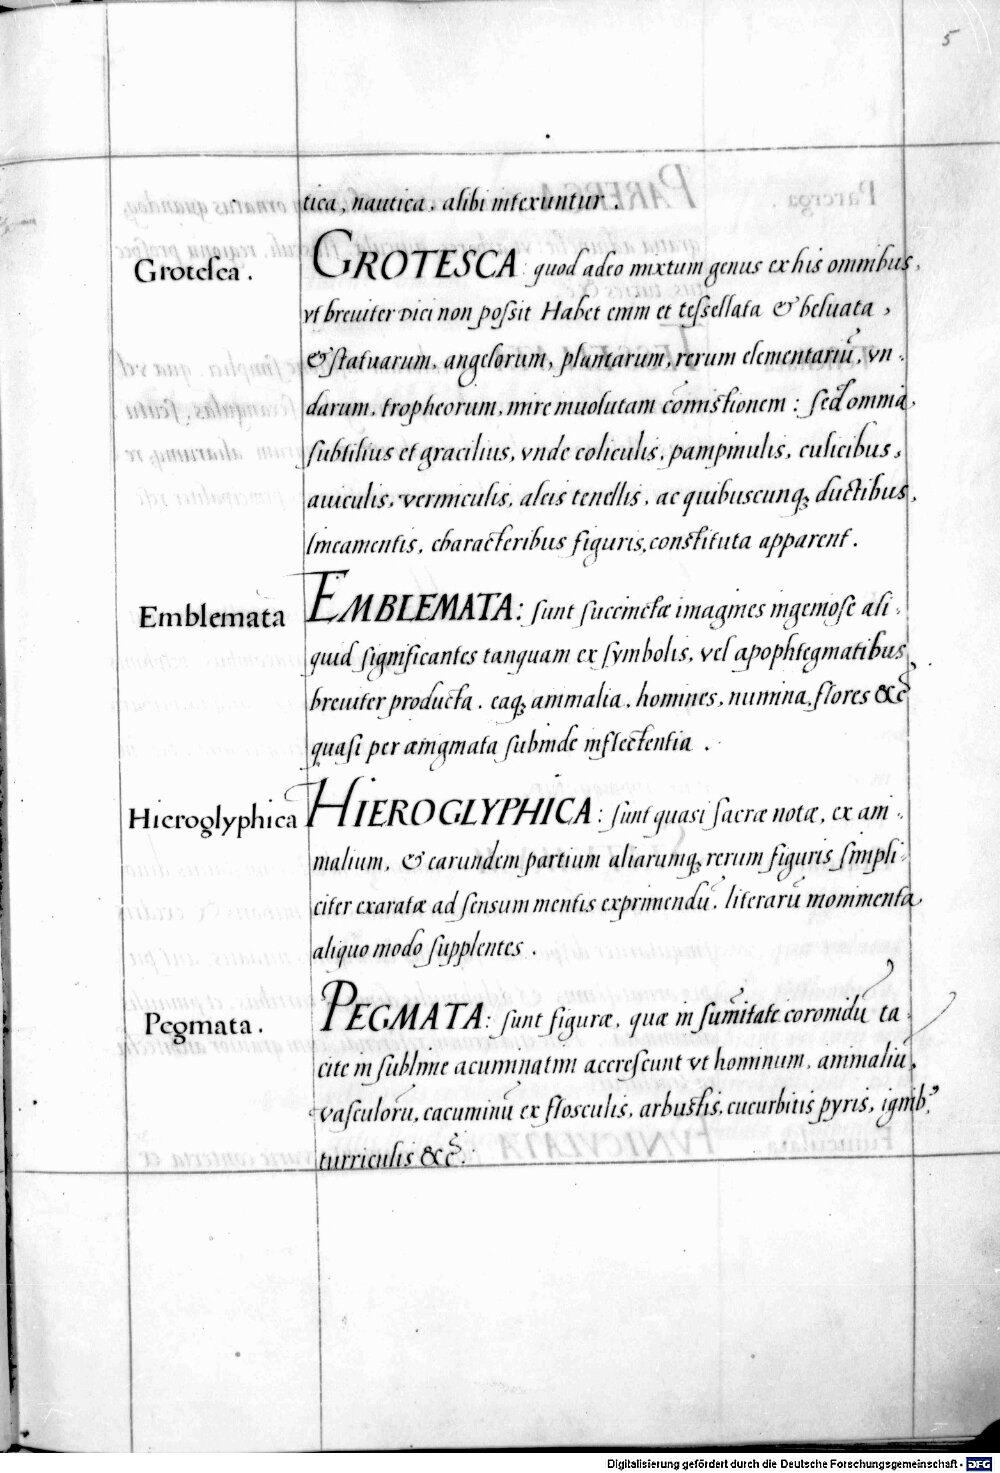 5
tica, nautica, alibi intexuntur.
Grotesca.
GROTESCA: quod adeo mixtum genus ex his omnibus,
vt breuiter dici non poſsit Habet enim et teſsellata & beluata,
& ſtatuarum, angelorum, plantarum, rerum elementariũ, vn-
darum, tropheorum, mire inuolutam com̃iſtionem: ſed omnia
ſubtilius et gracilius, vnde coliculis, pampinulis, culicibus,
auiculis, vermiculis, aleis tenellis, ac quibuscunq; ductibus,
lineamentis, characteribus figuris, conſtituta apparent.
Emblemata
EMBLEMATA: ſunt ſuccinctæ imagines ingenioſe ali-
quid ſignificantes tanquam ex ſymbolis, vel apophtegmatibus
breuiter producta. eaq; animalia, homines, numina, flores &c̃
quaſi per ænigmata ſubinde inflectentia.
Hieroglyphica
HIEROGLYPHICA: ſunt quasi ſacræ notæ, ex ani-
malium, & earundem partium aliarumq; rerum figuris ſimpli-
citer exaratæ ad ſensum mentis exprimendũ. literarũ monimenta
aliquo modo ſupplentes.
Pegmata.
PEGMATA: ſunt figuræ, quæ in ſum̃itate coronidũ ta-
cite in ſublime acuminatim accreſcunt vt hominum, animaliũ,
vaſculorũ, cacuminũ ex floſculis, arbuſtis, cucurbitis pyris, ignib,
turriculis &c̃.
Digitalisierung gefördert durch die Deutsche Forschungsgemeinschaft - DFG